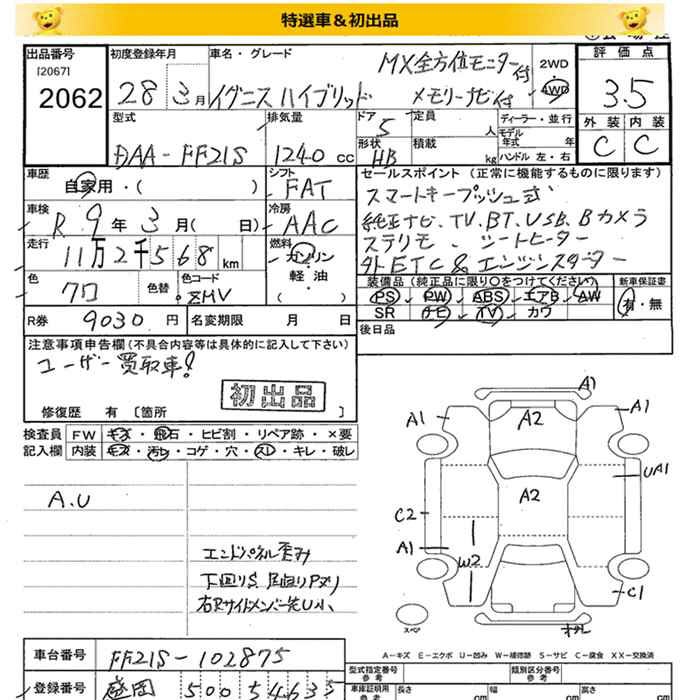 特選車＆初出品
出品番号 初度登録年月 車名・グレード 2WD 評価点
[2067] MX全方位モニター付 4WD
2062 28 3月 イグニスハイブリッド メモリーナビ付 3.5
型式 排気量 ドア 5 定員 人 ディーラー・並行 外装 内装
DAA-FF21S 1240 cc 形状 HB 積載 kg モデル年式 年 C C
ハンドル 左・右
車歴 自家用・( ) シフト FAT セールスポイント (正常に機能するものに限ります)
車検 R 9年 3月( 日) 冷房 AAC スマートキープッシュ式
走行 11万2千568km 燃料 ガソリン 軽・油 ( ) 純正ナビ、TV、BT、USB、Bカメラ
ステリモ、シートヒーター
色 色替 色コード 外ETC&エンジンスターター
クロ ZMV
装備品(純正品に限り○をつけてください) 新車保証書
PS PW ABS エアB AW 有・無
SR ナビ TV カワ
R券 9030円 名変期限 月 日 後日品
注意事項申告欄(不具合内容等は具体的に記入して下さい)
ユーザー買取車!
初出品
修復歴 有 [箇所 ]
検査員 FW キズ・飛石・ヒビ割・リペア跡・×要
記入欄 内装 キズ・汚レ・コゲ・穴・スレ・キレ・破レ
A.U
エンドパネル歪み
下回りS 足回りPヌリ
右Rサイドメンバー先U小
A1
A1 A2 A1
UA1
A2
C2
A1
W2
C1
スペア
A-キズ E-エクボ U-凹み W-補修跡 S-サビ C-腐食 XX-交換済
車台番号 FF21S-102875
型式指定番号 参考 類別区分番号 参考
登録番号 盛岡 500 そ 4635
車庫証明用 参考 長さ 幅 高さ